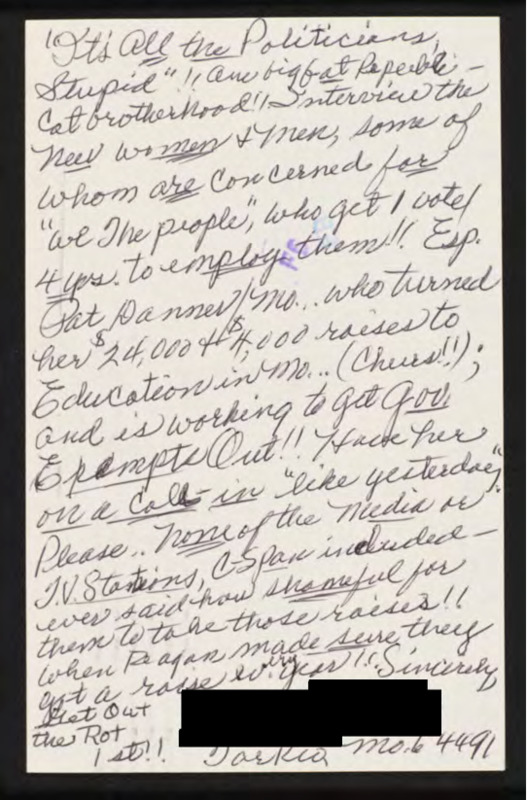 "It's All the Politicians,
Stupid"!! One big fat Republi-
Cat brotherhood!! Interview the
New Women & Men, some of
whom are concerned for
"We The people", who get 1 vote/
4 yrs. to employ them!! Esp.
Pat Danner/Mo... who turned
her $24,000 + $4,000 raises to
Education in Mo... (Cheers!!);
and is working to get Gov.
Exempts Out!! Have her
on a Call-in "like yesterday"
Please.. None of the Media or
T.V. Stations, C-Span included-
ever said how shameful for
them to take those raises!!
When Reagan made sure they
got a raise every year!! Sincerely
Get Out
the Rot
1st!! Tarkio Mo. 64491